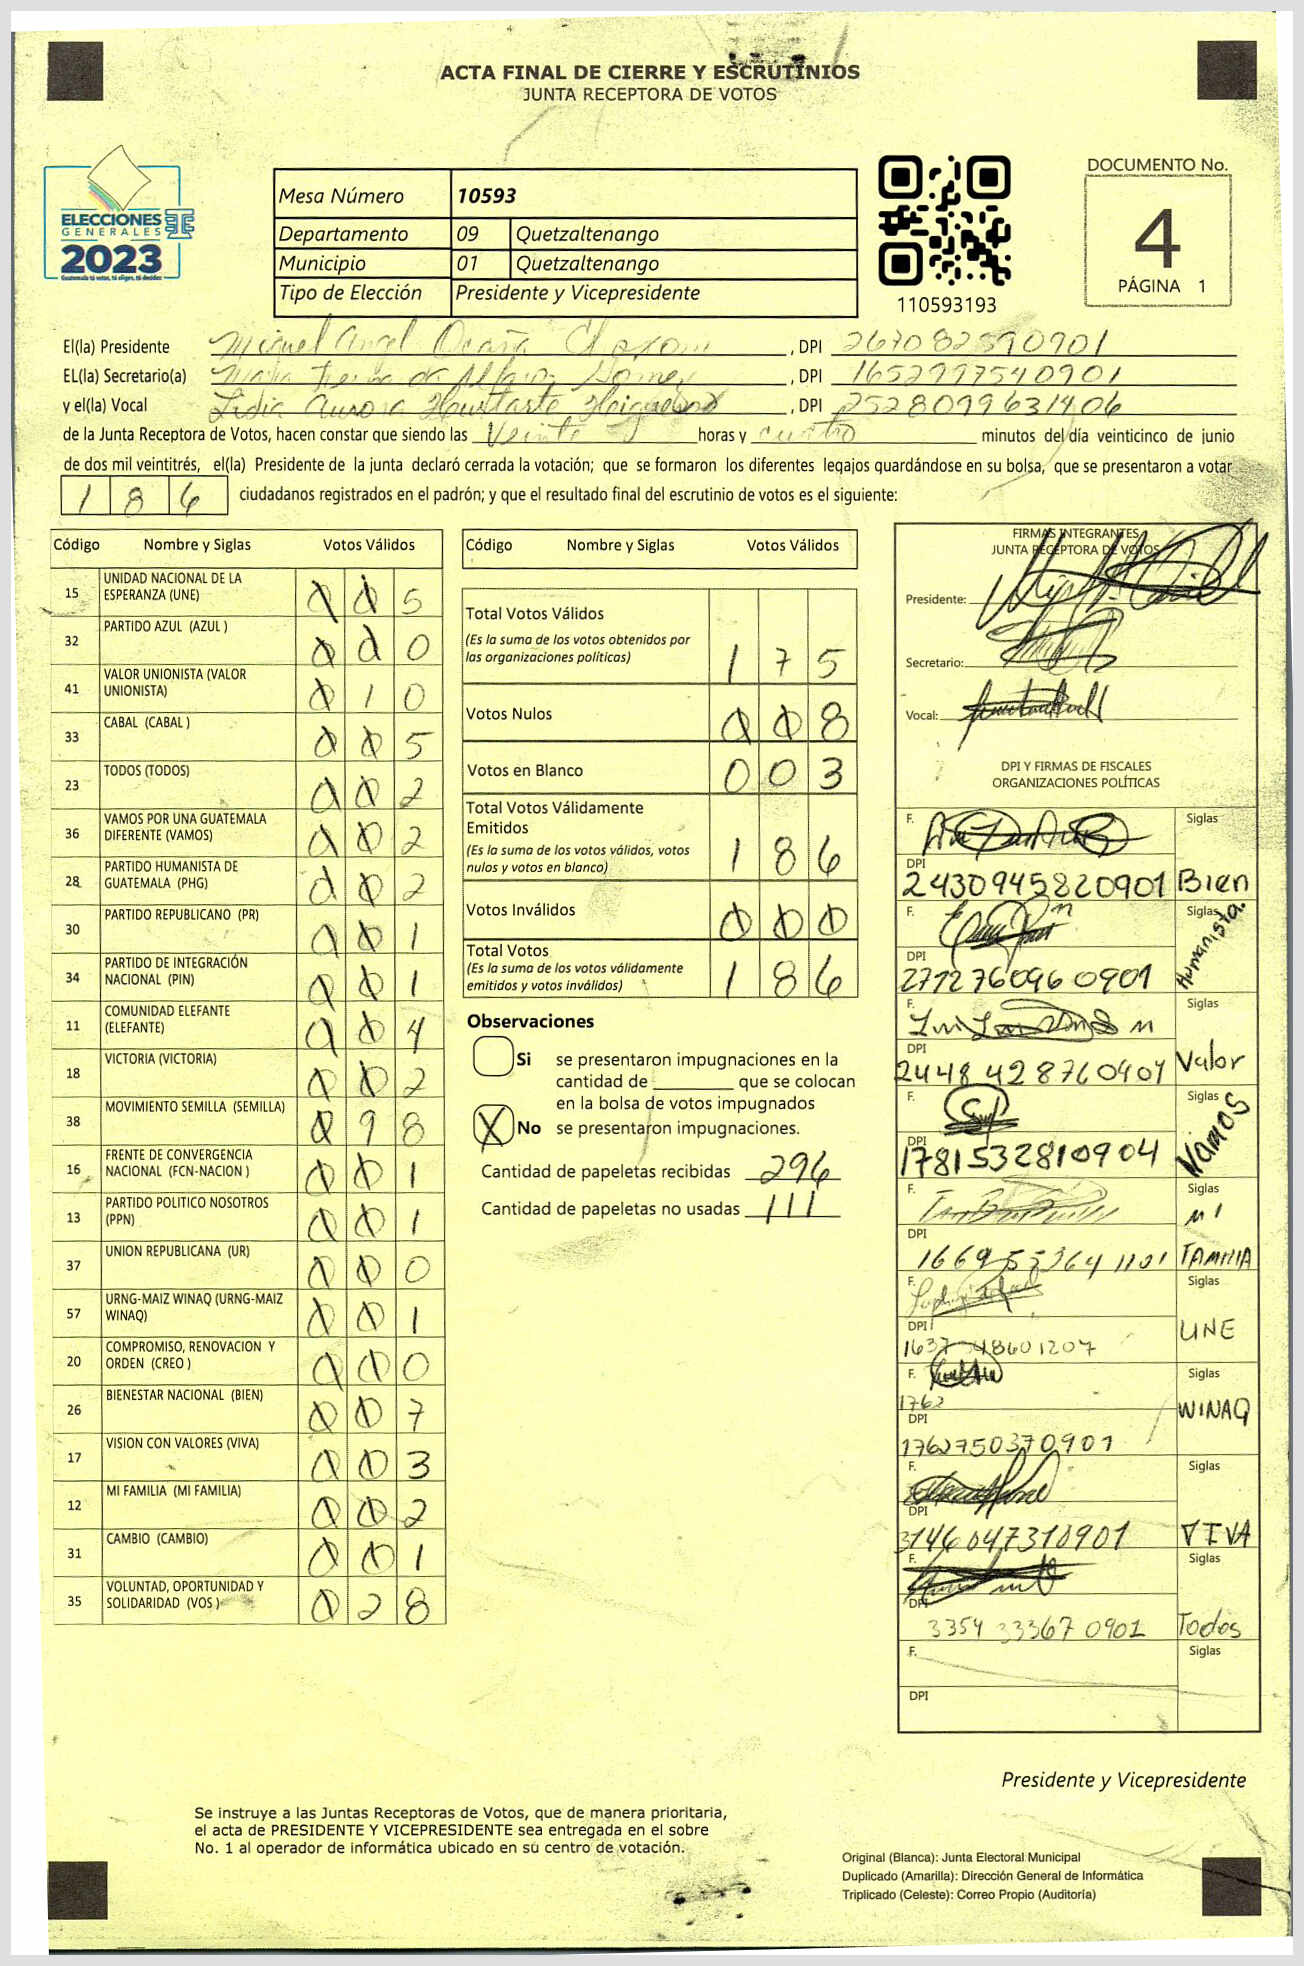 ACTA FINAL DE CIERRE Y ESCRUTINIOS
JUNTA RECEPTORA DE VOTOS
ELECCIONES
GENERALES
2023
Guatemala tú votas, tú eliges, tú decides
Mesa Número 10593
Departamento 09 Quetzaltenango
Municipio 01 Quetzaltenango
Tipo de Elección Presidente y Vicepresidente
110593193
DOCUMENTO No.
4
PÁGINA 1
El(la) Presidente Miguel Angel Ocaña , DPI
EL(la) Secretario(a) , DPI 1652997540901
y el(la) Vocal Lidia Aurora , DPI 2528099631406
de la Junta Receptora de Votos, hacen constar que siendo las Veinte horas y cuatro minutos del día veinticinco de junio
de dos mil veintitrés, el(la) Presidente de la junta declaró cerrada la votación; que se formaron los diferentes legajos quardándose en su bolsa, que se presentaron a votar
186 ciudadanos registrados en el padrón; y que el resultado final del escrutinio de votos es el siguiente:
Código Nombre y Siglas Votos Válidos
15 UNIDAD NACIONAL DE LA ESPERANZA (UNE) 0 0 5
32 PARTIDO AZUL (AZUL ) 0 0 0
41 VALOR UNIONISTA (VALOR UNIONISTA) 0 1 0
33 CABAL (CABAL ) 0 0 5
23 TODOS (TODOS) 0 0 2
36 VAMOS POR UNA GUATEMALA DIFERENTE (VAMOS) 0 0 2
28 PARTIDO HUMANISTA DE GUATEMALA (PHG) 0 0 2
30 PARTIDO REPUBLICANO (PR) 0 0 1
34 PARTIDO DE INTEGRACIÓN NACIONAL (PIN) 0 0 1
11 COMUNIDAD ELEFANTE (ELEFANTE) 0 0 4
18 VICTORIA (VICTORIA) 0 0 2
38 MOVIMIENTO SEMILLA (SEMILLA) 0 9 8
16 FRENTE DE CONVERGENCIA NACIONAL (FCN-NACION ) 0 0 1
13 PARTIDO POLITICO NOSOTROS (PPN) 0 0 1
37 UNION REPUBLICANA (UR) 0 0 0
57 URNG-MAIZ WINAQ (URNG-MAIZ WINAQ) 0 0 1
20 COMPROMISO, RENOVACION Y ORDEN (CREO ) 0 0 0
26 BIENESTAR NACIONAL (BIEN) 0 0 7
17 VISION CON VALORES (VIVA) 0 0 3
12 MI FAMILIA (MI FAMILIA) 0 0 2
31 CAMBIO (CAMBIO) 0 0 1
35 VOLUNTAD, OPORTUNIDAD Y SOLIDARIDAD (VOS ) 0 2 8
Código Nombre y Siglas Votos Válidos
Total Votos Válidos 1 7 5
(Es la suma de los votos obtenidos por
las organizaciones políticas)
Votos Nulos 0 0 8
Votos en Blanco 0 0 3
Total Votos Válidamente
Emitidos 1 8 6
(Es la suma de los votos válidos, votos
nulos y votos en blanco)
Votos Inválidos 0 0 0
Total Votos 1 8 6
(Es la suma de los votos válidamente
emitidos y votos inválidos)
Observaciones
Si se presentaron impugnaciones en la
cantidad de ________ que se colocan
en la bolsa de votos impugnados
X No se presentaron impugnaciones.
Cantidad de papeletas recibidas 296
Cantidad de papeletas no usadas 111
FIRMAS INTEGRANTES
JUNTA RECEPTORA DE VOTOS
Presidente:
Secretario:
Vocal:
DPI Y FIRMAS DE FISCALES
ORGANIZACIONES POLÍTICAS
F. Siglas
DPI
2430945820901 Bien
F. Siglas
DPI
2712760960901 Humanista.
F. Siglas
DPI
Valor
F. Siglas
DPI
1781532810904 Vamos
F. Siglas
DPI
MI FAMILIA
F. Siglas
DPI
UNE
F. Siglas
1762
DPI
1762750370901 WINAQ
F. Siglas
DPI
3146047310901 VIVA
F. Siglas
DPI
3354 33367 0901 Todos
F. Siglas
DPI
Presidente y Vicepresidente
Se instruye a las Juntas Receptoras de Votos, que de manera prioritaria,
el acta de PRESIDENTE Y VICEPRESIDENTE sea entregada en el sobre
No. 1 al operador de informática ubicado en su centro de votación.
Original (Blanca): Junta Electoral Municipal
Duplicado (Amarilla): Dirección General de Informática
Triplicado (Celeste): Correo Propio (Auditoría)